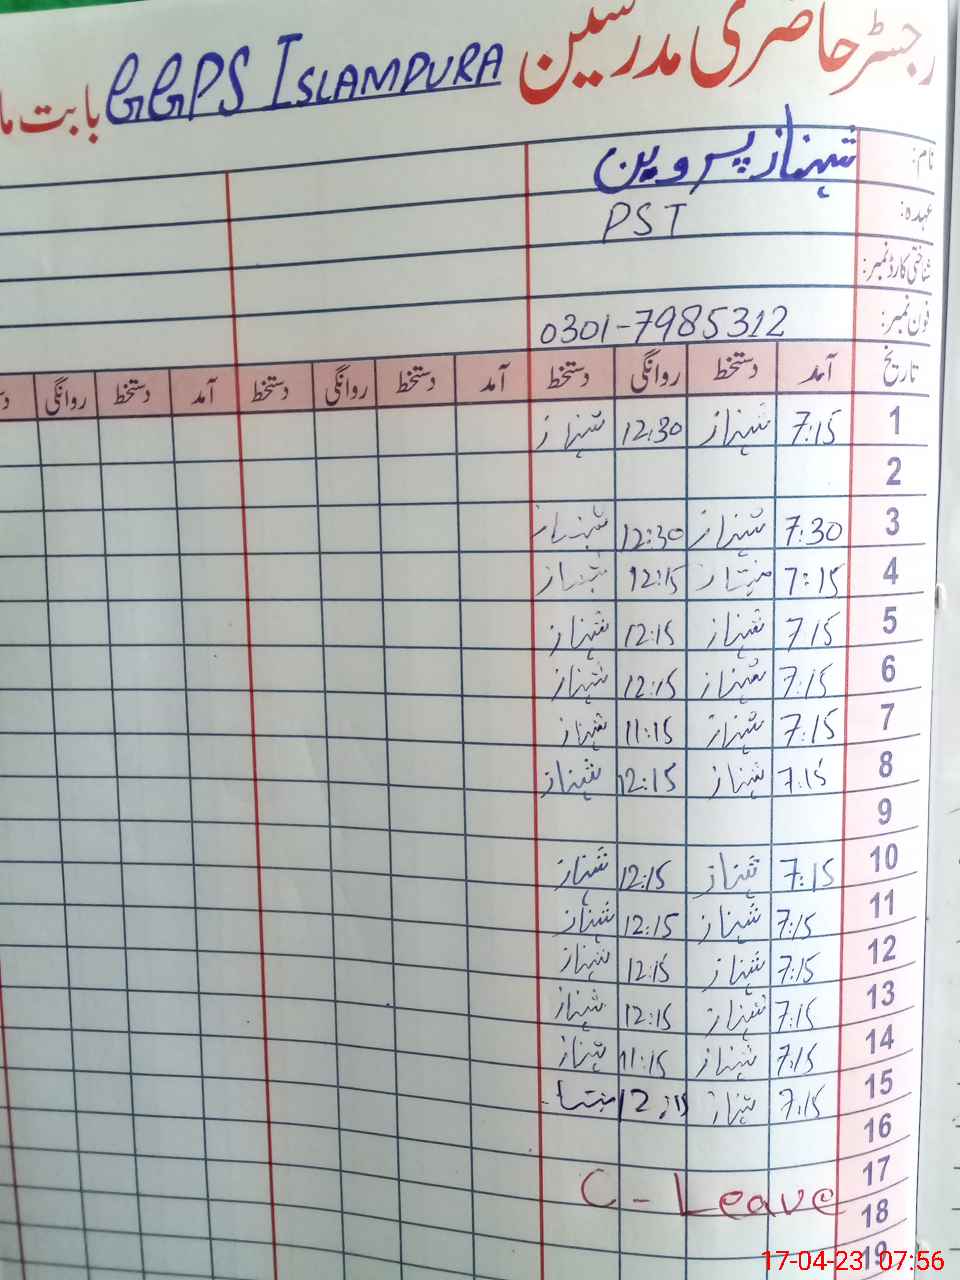 رجسٹر حاضری مدرسین GGPS ISLAMPURA بابت ما
نام: شہناز پروین
عہدہ: PST
شناختی کارڈ نمبر:
فون نمبر: 0301-7985312
تاریخ آمد دستخط روانگی دستخط آمد دستخط روانگی دستخط آمد دستخط روانگی
1 7:15 شہناز 12:30 شہناز
2
3 7:30 شہناز 12:30 شہناز
4 7:15 شہناز 12:15 شہناز
5 7:15 شہناز 12:15 شہناز
6 7:15 شہناز 12:15 شہناز
7 7:15 شہناز 11:15 شہناز
8 7:15 شہناز 12:15 شہناز
9
10 7:15 شہناز 12:15 شہناز
11 7:15 شہناز 12:15 شہناز
12 7:15 شہناز 12:15 شہناز
13 7:15 شہناز 12:15 شہناز
14 7:15 شہناز 11:15 شہناز
15 7:15 شہناز 12:15
16
17 C-Leave
18
19
17-04-23 07:56